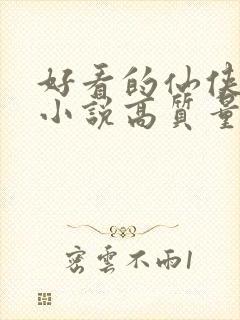 好看的仙侠
小说高質量
密雲不雨1